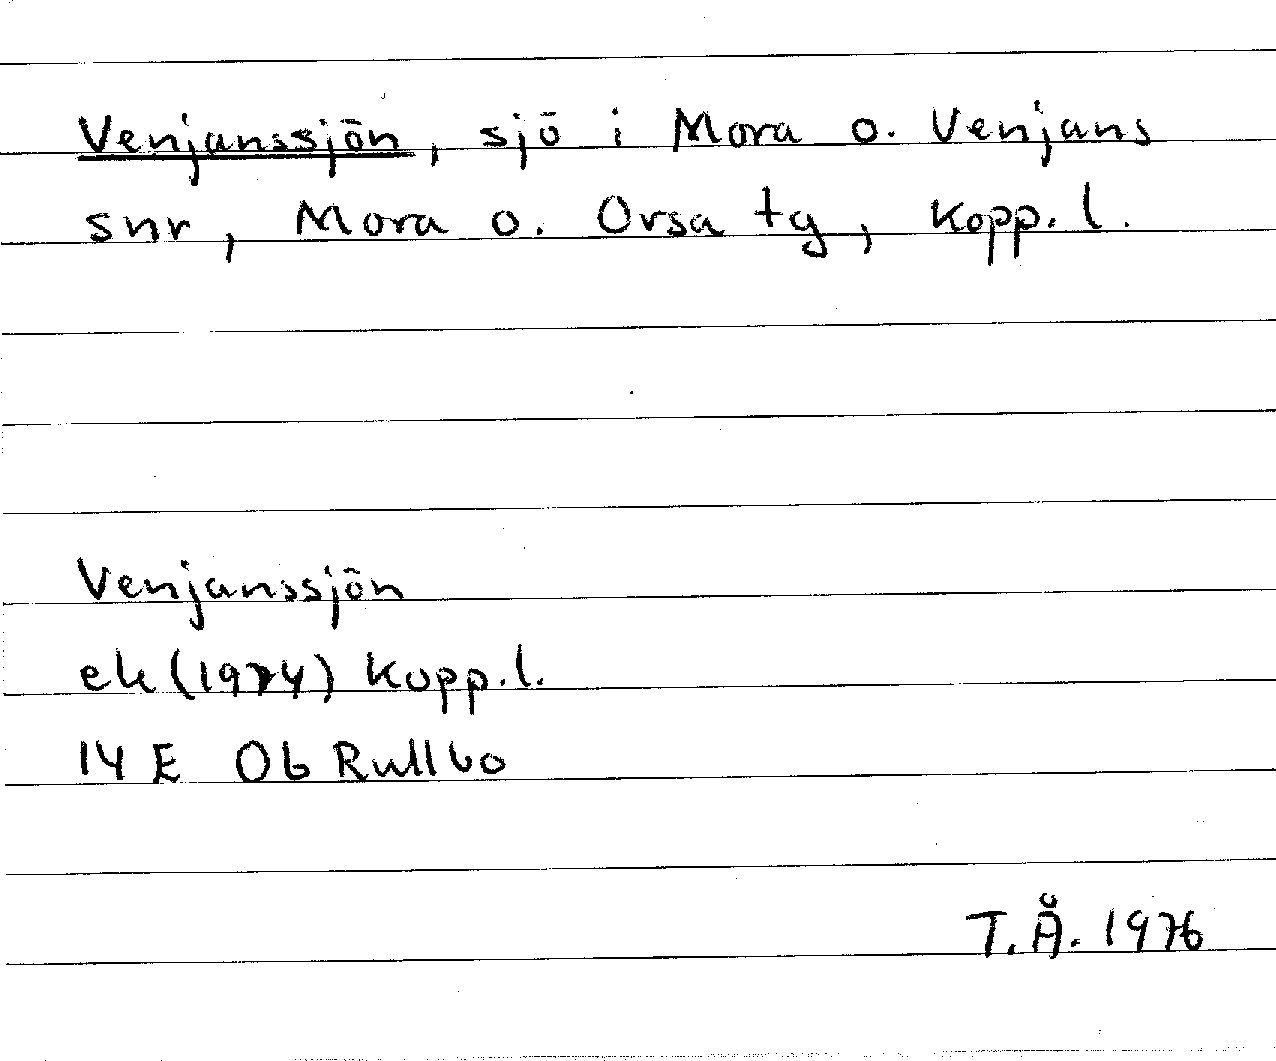 Venjanssjön, sjö i Mora o. Venjans
snr, Mora o. Orsa tg, Kopp. l.
Venjanssjön
ek (1974) Kopp. l.
14 E 0b Rullbo
T. Å. 1976